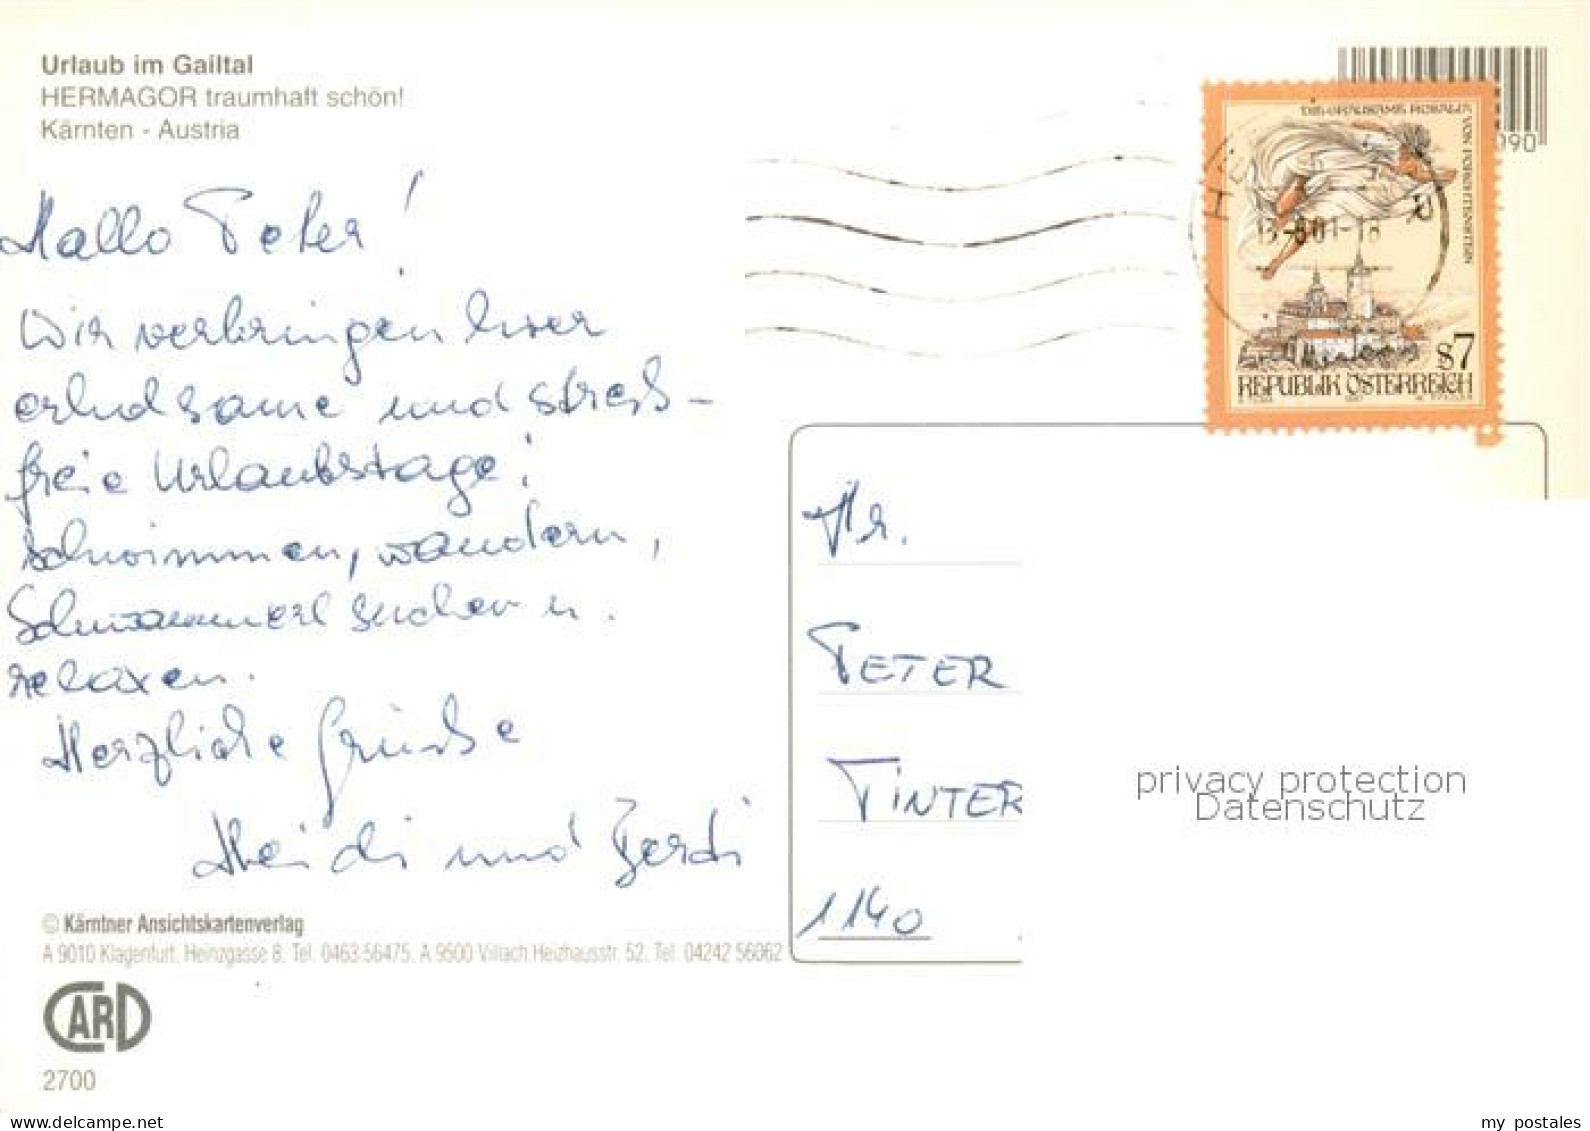 Urlaub im Gailtal
HERMAGOR traumhaft schön!
Kärnten - Austria
Hallo Peter!
Wir verbringen hier
erholsame und streß-
freie Urlaubstage!
Schwimmen, wandern,
Schwammerl suchen u.
relaxen.
Herzliche Grüsse
Heidi und Ferdi
© Kärntner Ansichtskartenverlag
A 9010 Klagenfurt, Heinzgasse 8, Tel. 0463 56475, A 9500 Villach, Heizhausstr. 52, Tel. 04242 56062
CARD
2700
090
DIE GRAUSAME ROSALIA VON FORCHTENSTEIN
HE
-8 01-18
S7
REPUBLIK ÖSTERREICH
Hr.
PETER
TINTER
1140
privacy protection
Datenschutz
my_postales